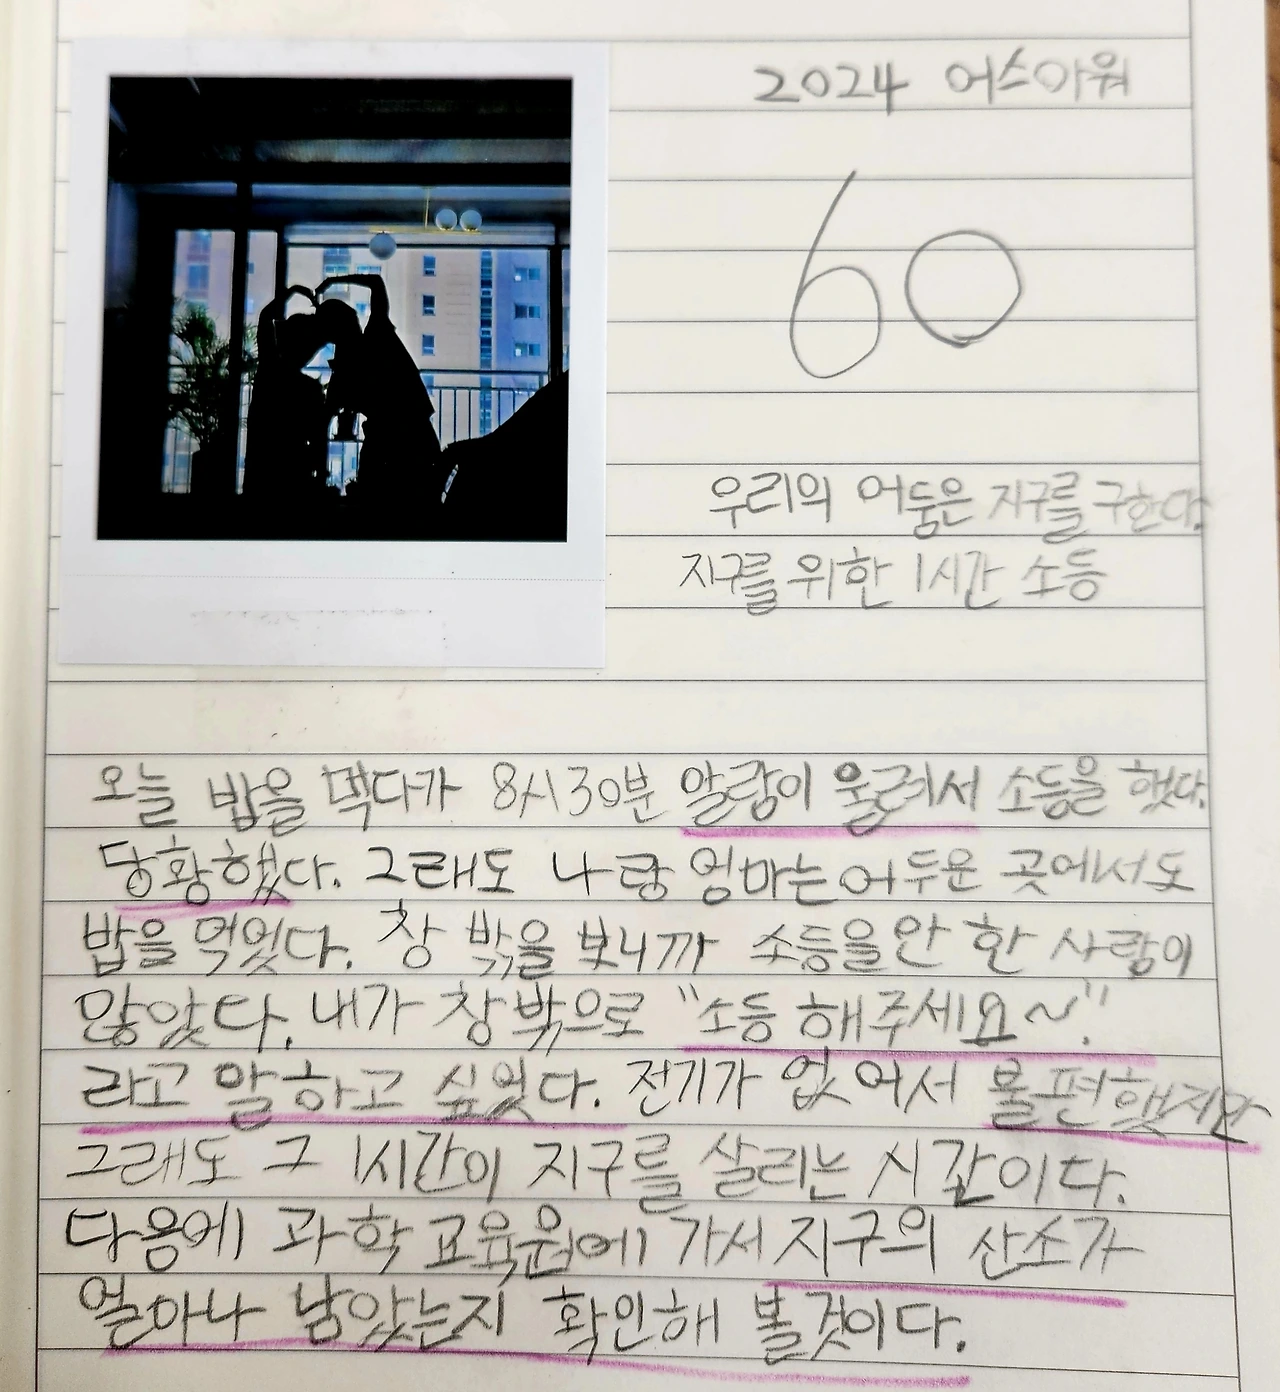 2024 어스아워
60
우리의 어둠은 지구를 구한다.
지구를 위한 1시간 소등
오늘 밥을 먹다가 8시30분 알람이 울려서 소등을 했다.
당황했다. 그래도 나랑 엄마는 어두운 곳에서도
밥을 먹었다. 창 밖을 보니까 소등을 안 한 사람이
많았다. 내가 창 밖으로 "소등 해주세요~."
라고 말하고 싶었다. 전기가 없어서 불편했지만
그래도 그 1시간이 지구를 살리는 시간이다.
다음에 과학교육원에 가서 지구의 산소가
얼마나 남았는지 확인해 볼것이다.